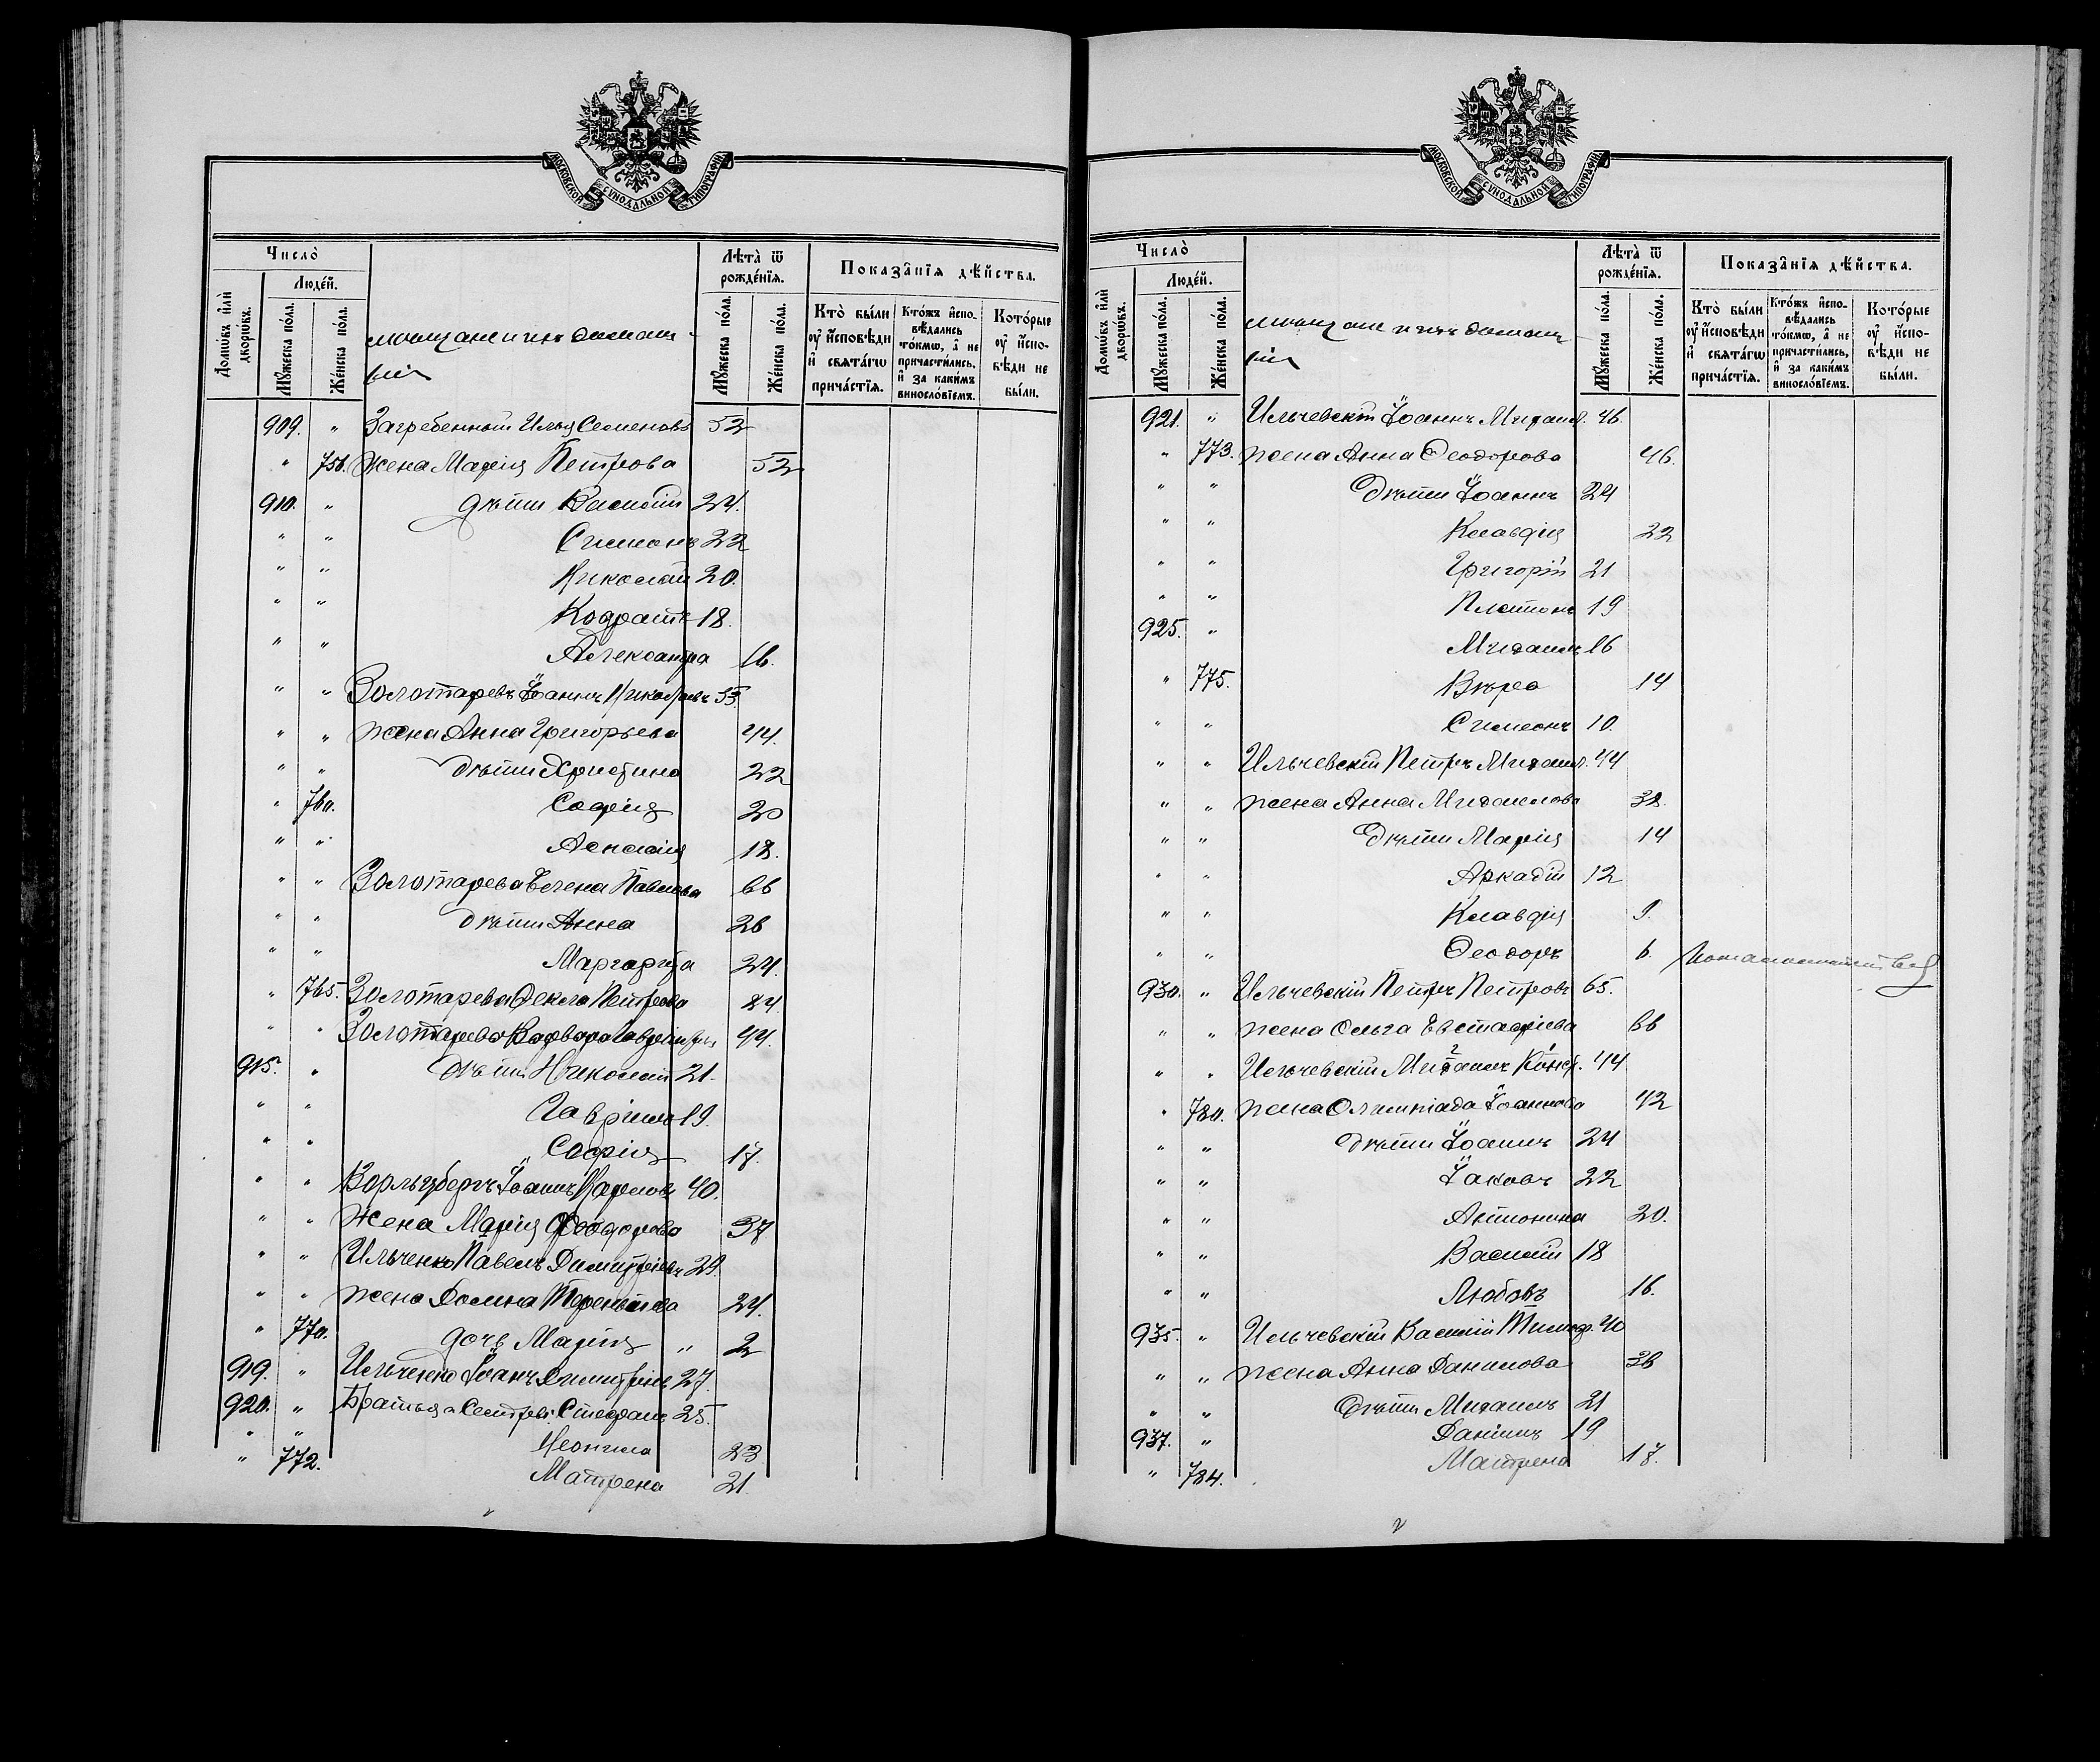 МОСКОВСКОЙ СѴНОДАЛЬНОЙ ТИПОГРАФІИ
Число̀
Людéй.
Домѡвъ и҆лѝ дворѡвъ.
Мꙋ́жеска по́ла.
Же́нска по́ла.
мѣщане и ихъ домаш-
ніе
Лѣта̀ ѿ рожде́нїѧ.
Мꙋ́жеска по́ла.
Же́нска по́ла.
Показа̂нїѧ дѣ́йства.
Кто̀ бы́ли ᲂу҆ и҆сповѣди и҆ свѧта́гѡ прича́стїѧ.
Кто́жъ и҆спо-вѣ́дались то́кмѡ, а҆ не причасти́лись, и҆ за каки́мъ винослόвїемъ.
Кото́рые ᲂу҆ и҆спо-вѣди не бы́ли.
909. " Загребенный Илья Семеновъ 52
" 756. жена Марія Петрова 52
910. " дѣти Василій 24.
" " Симеонъ 22
" " Николай 20.
" " Кодратъ 18.
" " Александра 16.
" " Золотаревъ Іоаннъ Николаевъ 53.
" " жена Анна Григорьева 44.
" " дѣти Христина 22
" 760. Софія 20
" " Аѳанасія 18.
" " Золотарева Елена Павлова 66
" " дѣти Анна 26
" " Маргарита 24.
" 765. Золотарева Ѳекла Петрова 84
" " Золотарева Варвара 44.
915. " дѣти Николай 21.
" " Гавріилъ 19.
" " Софія 17.
" " Іоаннъ Карловъ 40.
" " Жена Марія Ѳеодорова 37
" " Ильченко Павелъ Димитріевъ 29.
" " жена Домна Терентьева 24.
" 770. дочь Марія " 2
919. " Ильченко Іоаннъ Димитріевъ 27.
920. " Братья и Сестры: Стефанъ 25.
" " Неонила 23
" 772. Матрена 21.
МОСКОВСКОЙ СѴНОДАЛЬНОЙ ТИПОГРАФІИ
Число̀
Людéй.
Домѡвъ и҆лѝ дворѡвъ.
Мꙋ́жеска по́ла.
Же́нска по́ла.
мѣщане и ихъ домаш-
ніе
Лѣта̀ ѿ рожде́нїѧ.
Мꙋ́жеска по́ла.
Же́нска по́ла.
Показа̂нїѧ дѣ́йства.
Кто̀ бы́ли ᲂу҆ и҆сповѣди и҆ свѧта́гѡ прича́стїѧ.
Кто́жъ и҆спо-вѣ́дались то́кмѡ, а҆ не причасти́лись, и҆ за каки́мъ винослόвїемъ.
Кото́рые ᲂу҆ и҆спо-вѣди не бы́ли.
921. " Ильчевскій Іоаннъ Михаил. 46.
" 773. жена Анна Ѳеодорова 46.
" " Дѣти Іоаннъ 24
" " Клавдія 22
" " Григорій 21
" " Платонъ 19
925. " Михаилъ 16
" 775. Вѣра 14
" " Симеонъ 10.
" " Ильчевскій Петръ Михаил. 44
" " жена Анна Михаилова 38.
" " Дѣти Марія 14
" " Аркадій 12
" " Клавдія 9.
" " Ѳеодоръ 6.
930. " Ильчевскій Петръ Петровъ 65.
" " жена Ольга Евстафіева 66
" " Ильчевскій Михаилъ Конст. 44
" 780. жена Олимпіада Іоаннова 42
" " дѣти Іоаннъ 24
" " Іаковъ 22
" " Антонина 20.
" " Василій 18
" " Любовь 16.
935. " Ильчевскій Василій Тимоф. 40
" " жена Анна Данилова 36
" " Дѣти Михаилъ 21
937. " Даніилъ 19
" 784. Матрена 17.